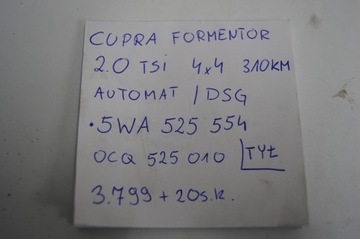 CUPRA FORMENTOR
2.0 TSI 4x4 310KM
AUTOMAT / DSG
•5WA 525 554
OCQ 525 010 TYŁ
3.799 + 20s.k.